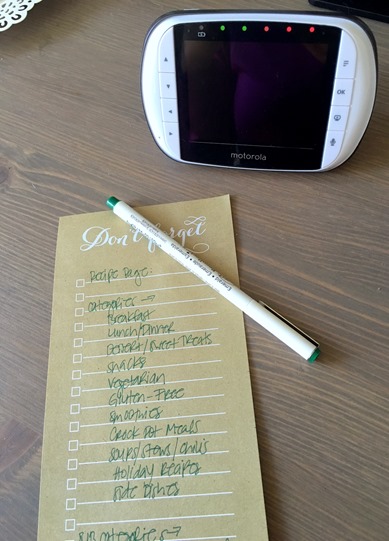 motorola
OK
Don't forget
Recipe Page:
Categories →
Breakfast
Lunch/Dinner
Dessert/Sweet Treats
Snacks
Vegetarian
Gluten-Free
Smoothies
Crock Pot Meals
Soups/Stews/Chilis
Holiday Recipes
Side Dishes
Sub categories →